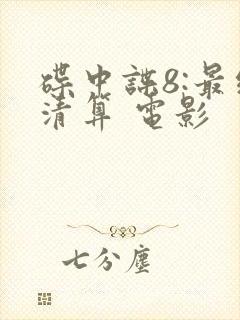 碟中諜8:最
清算 電影
七分塵